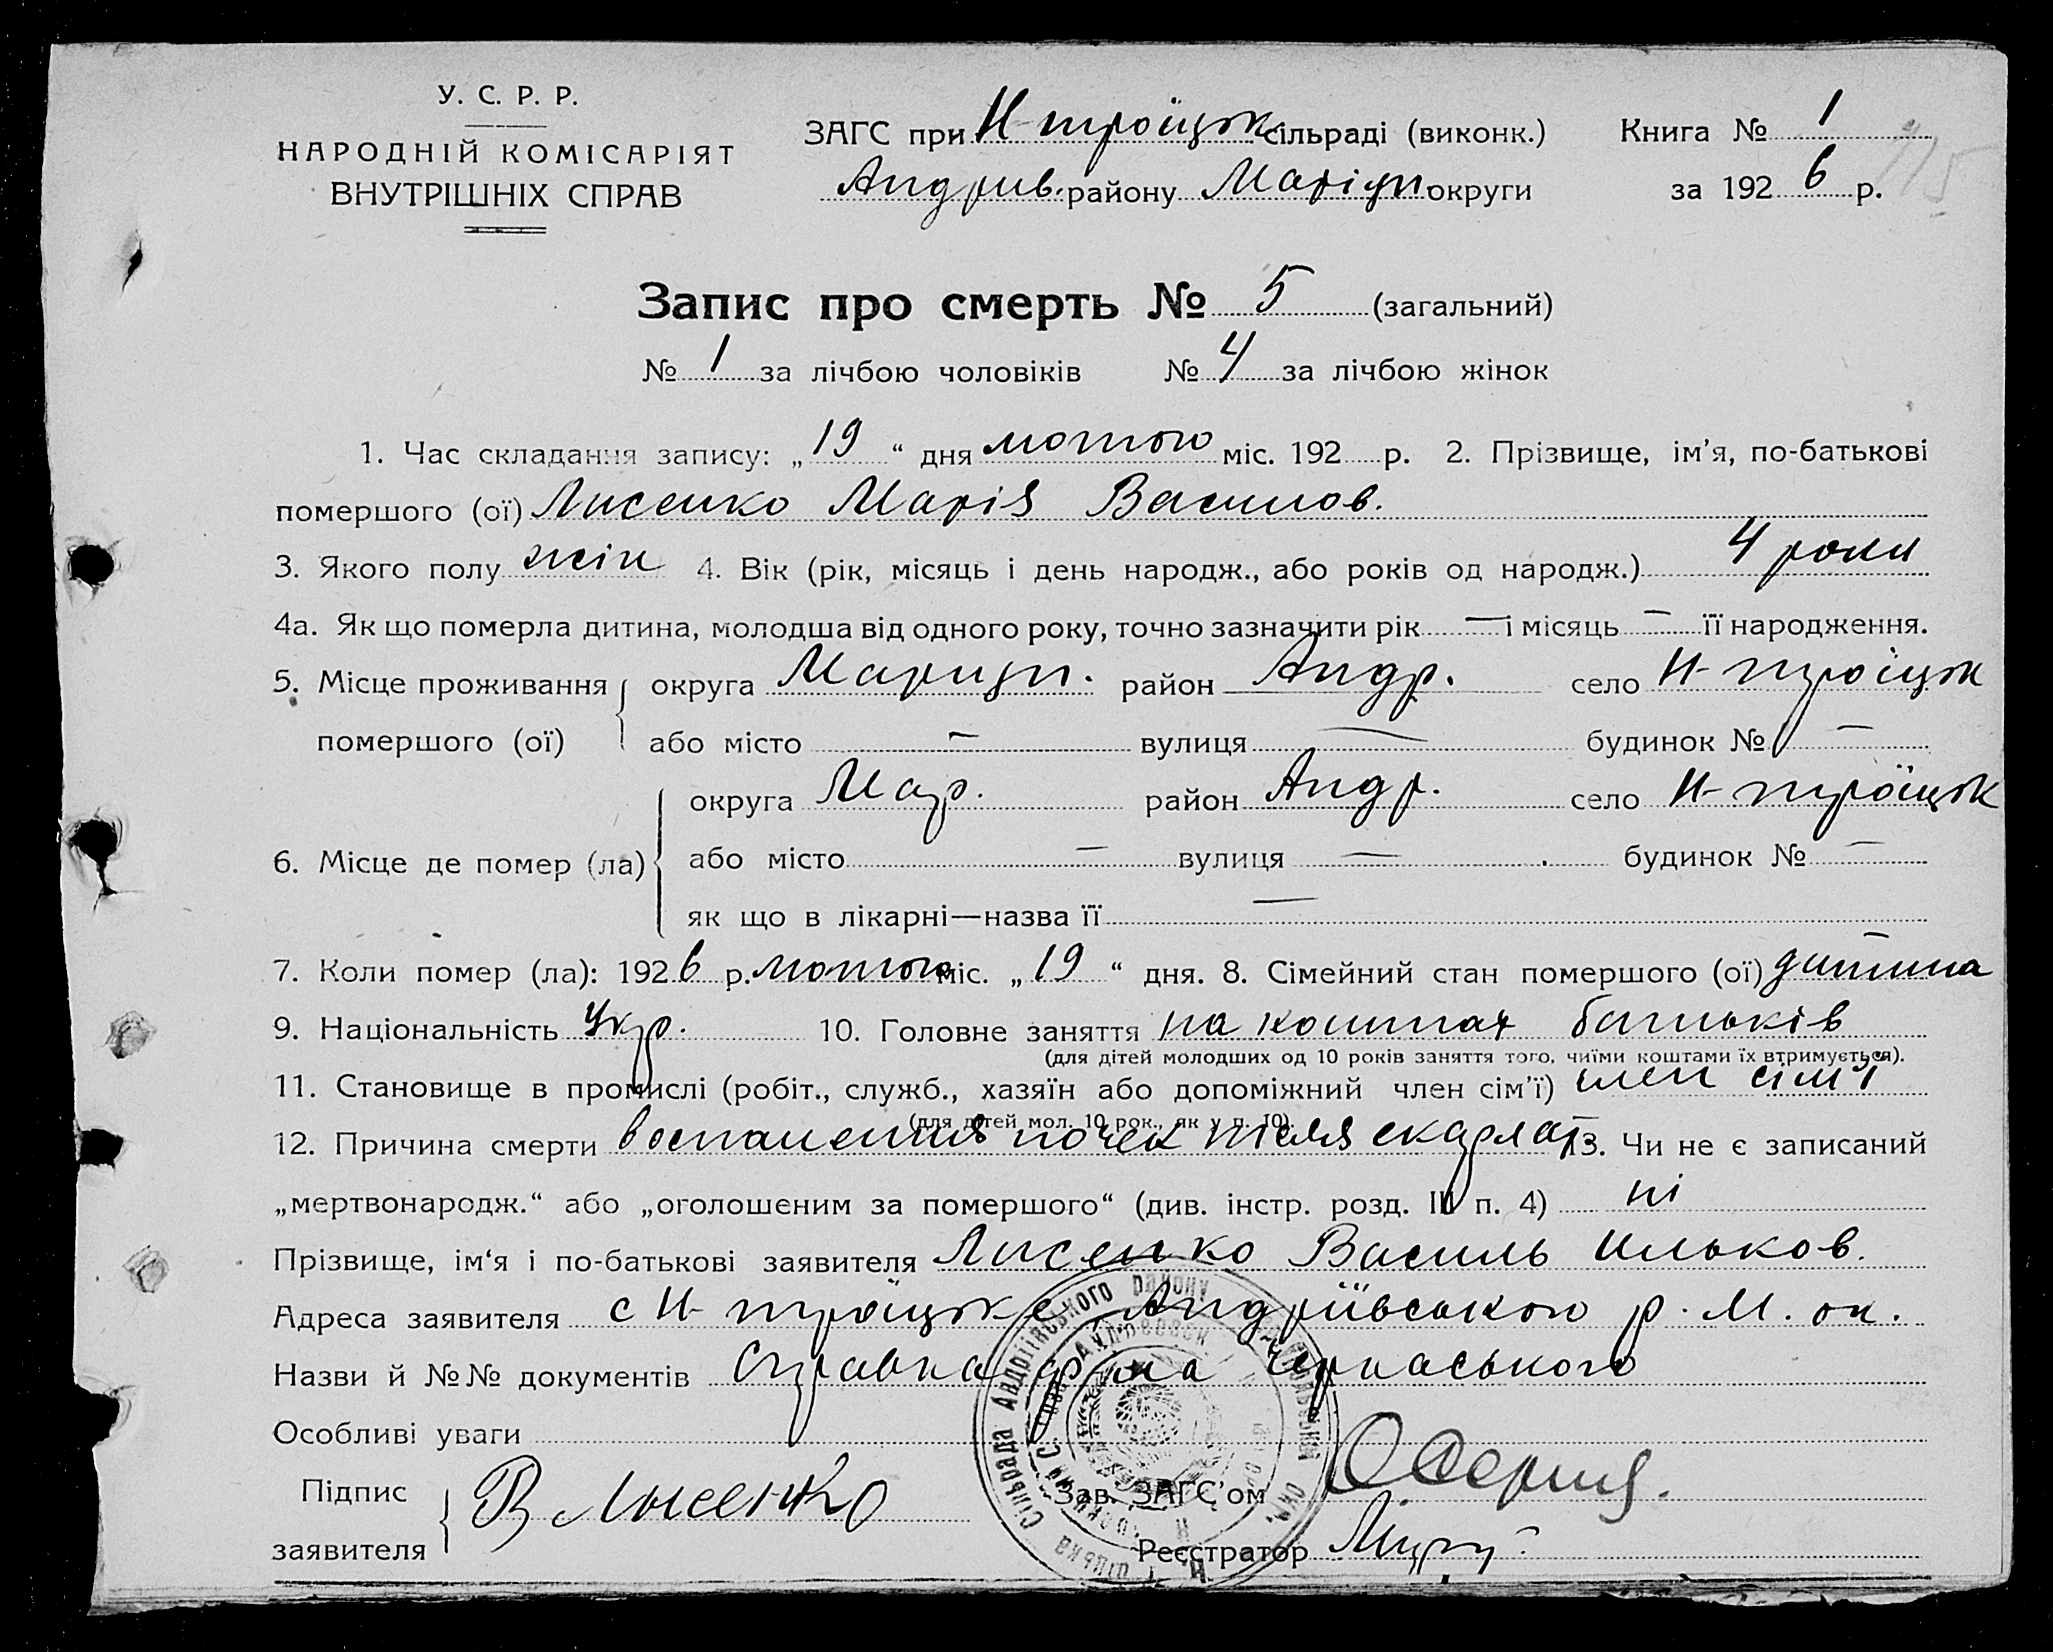 У. С. Р. Р.
НАРОДНІЙ КОМІСАРІЯТ
ВНУТРІШНІХ СПРАВ
ЗАГС при Н-троїцьк. сільраді (виконк.)
Андрив. району Маріуп. округи
Книга № 1
за 1926 р.
Запис про смерть № 5 (загальний)
№ 1 за лічбою чоловіків № 4 за лічбою жінок
1. Час складання запису: „19“ дня лютого міс. 192 р. 2. Прізвище, ім'я, по-батькові
помершого (ої) Лисенко Марія Василов.
3. Якого полу жін 4. Вік (рік, місяць і день народж., або років од народж.) 4 роки
4а. Як що померла дитина, молодша від одного року, точно зазначити рік — і місяць — її народження.
5. Місце проживання округа Мариуп. район Андр. село Н-троіцьк
помершого (ої) або місто — вулиця — будинок № —
округа Мар. район Андр. село Н-троїцьк
6. Місце де помер (ла) або місто — вулиця — будинок № —
як що в лікарні—назва її —
7. Коли помер (ла): 1926 р. лютого міс. „19“ дня. 8. Сімейний стан помершого (ої) дитина
9. Національність Укр. 10. Головне заняття на коштах батьків
(для дітей молодших од 10 років заняття того, чиїми коштами їх втримується).
11. Становище в промислі (робіт., служб., хазяїн або допоміжний член сім'ї) член сім'ї
(для дітей мол. 10 рок., як у п. 10).
12. Причина смерти воспаления почек після скарлат 13. Чи не є записаний
„мертвонародж.“ або „оголошеним за помершого“ (див. інстр. розд. III п. 4) ні
Прізвище, ім'я і по-батькові заявителя Лисенко Василь Ильков.
Адреса заявителя с Н-троїцьке Андріївського р. М. ок.
Назви й №№ документів Справка Черкаського
Особливі уваги
Підпис
заявителя В Лисенко
Зав. ЗАГС'ом
Реєстратор
Сільрада Андріївського району